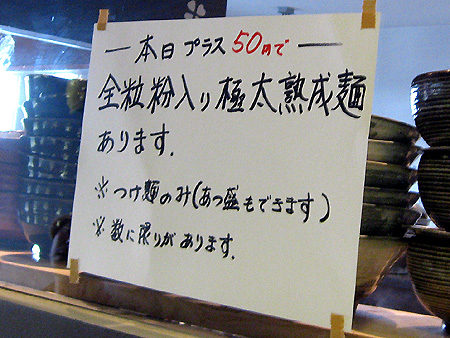 ― 本日プラス50円で ―
全粒粉入り極太熟成麺
あります.
※ つけ麺のみ(あつ盛もできます)
※ 数に限りがあります.